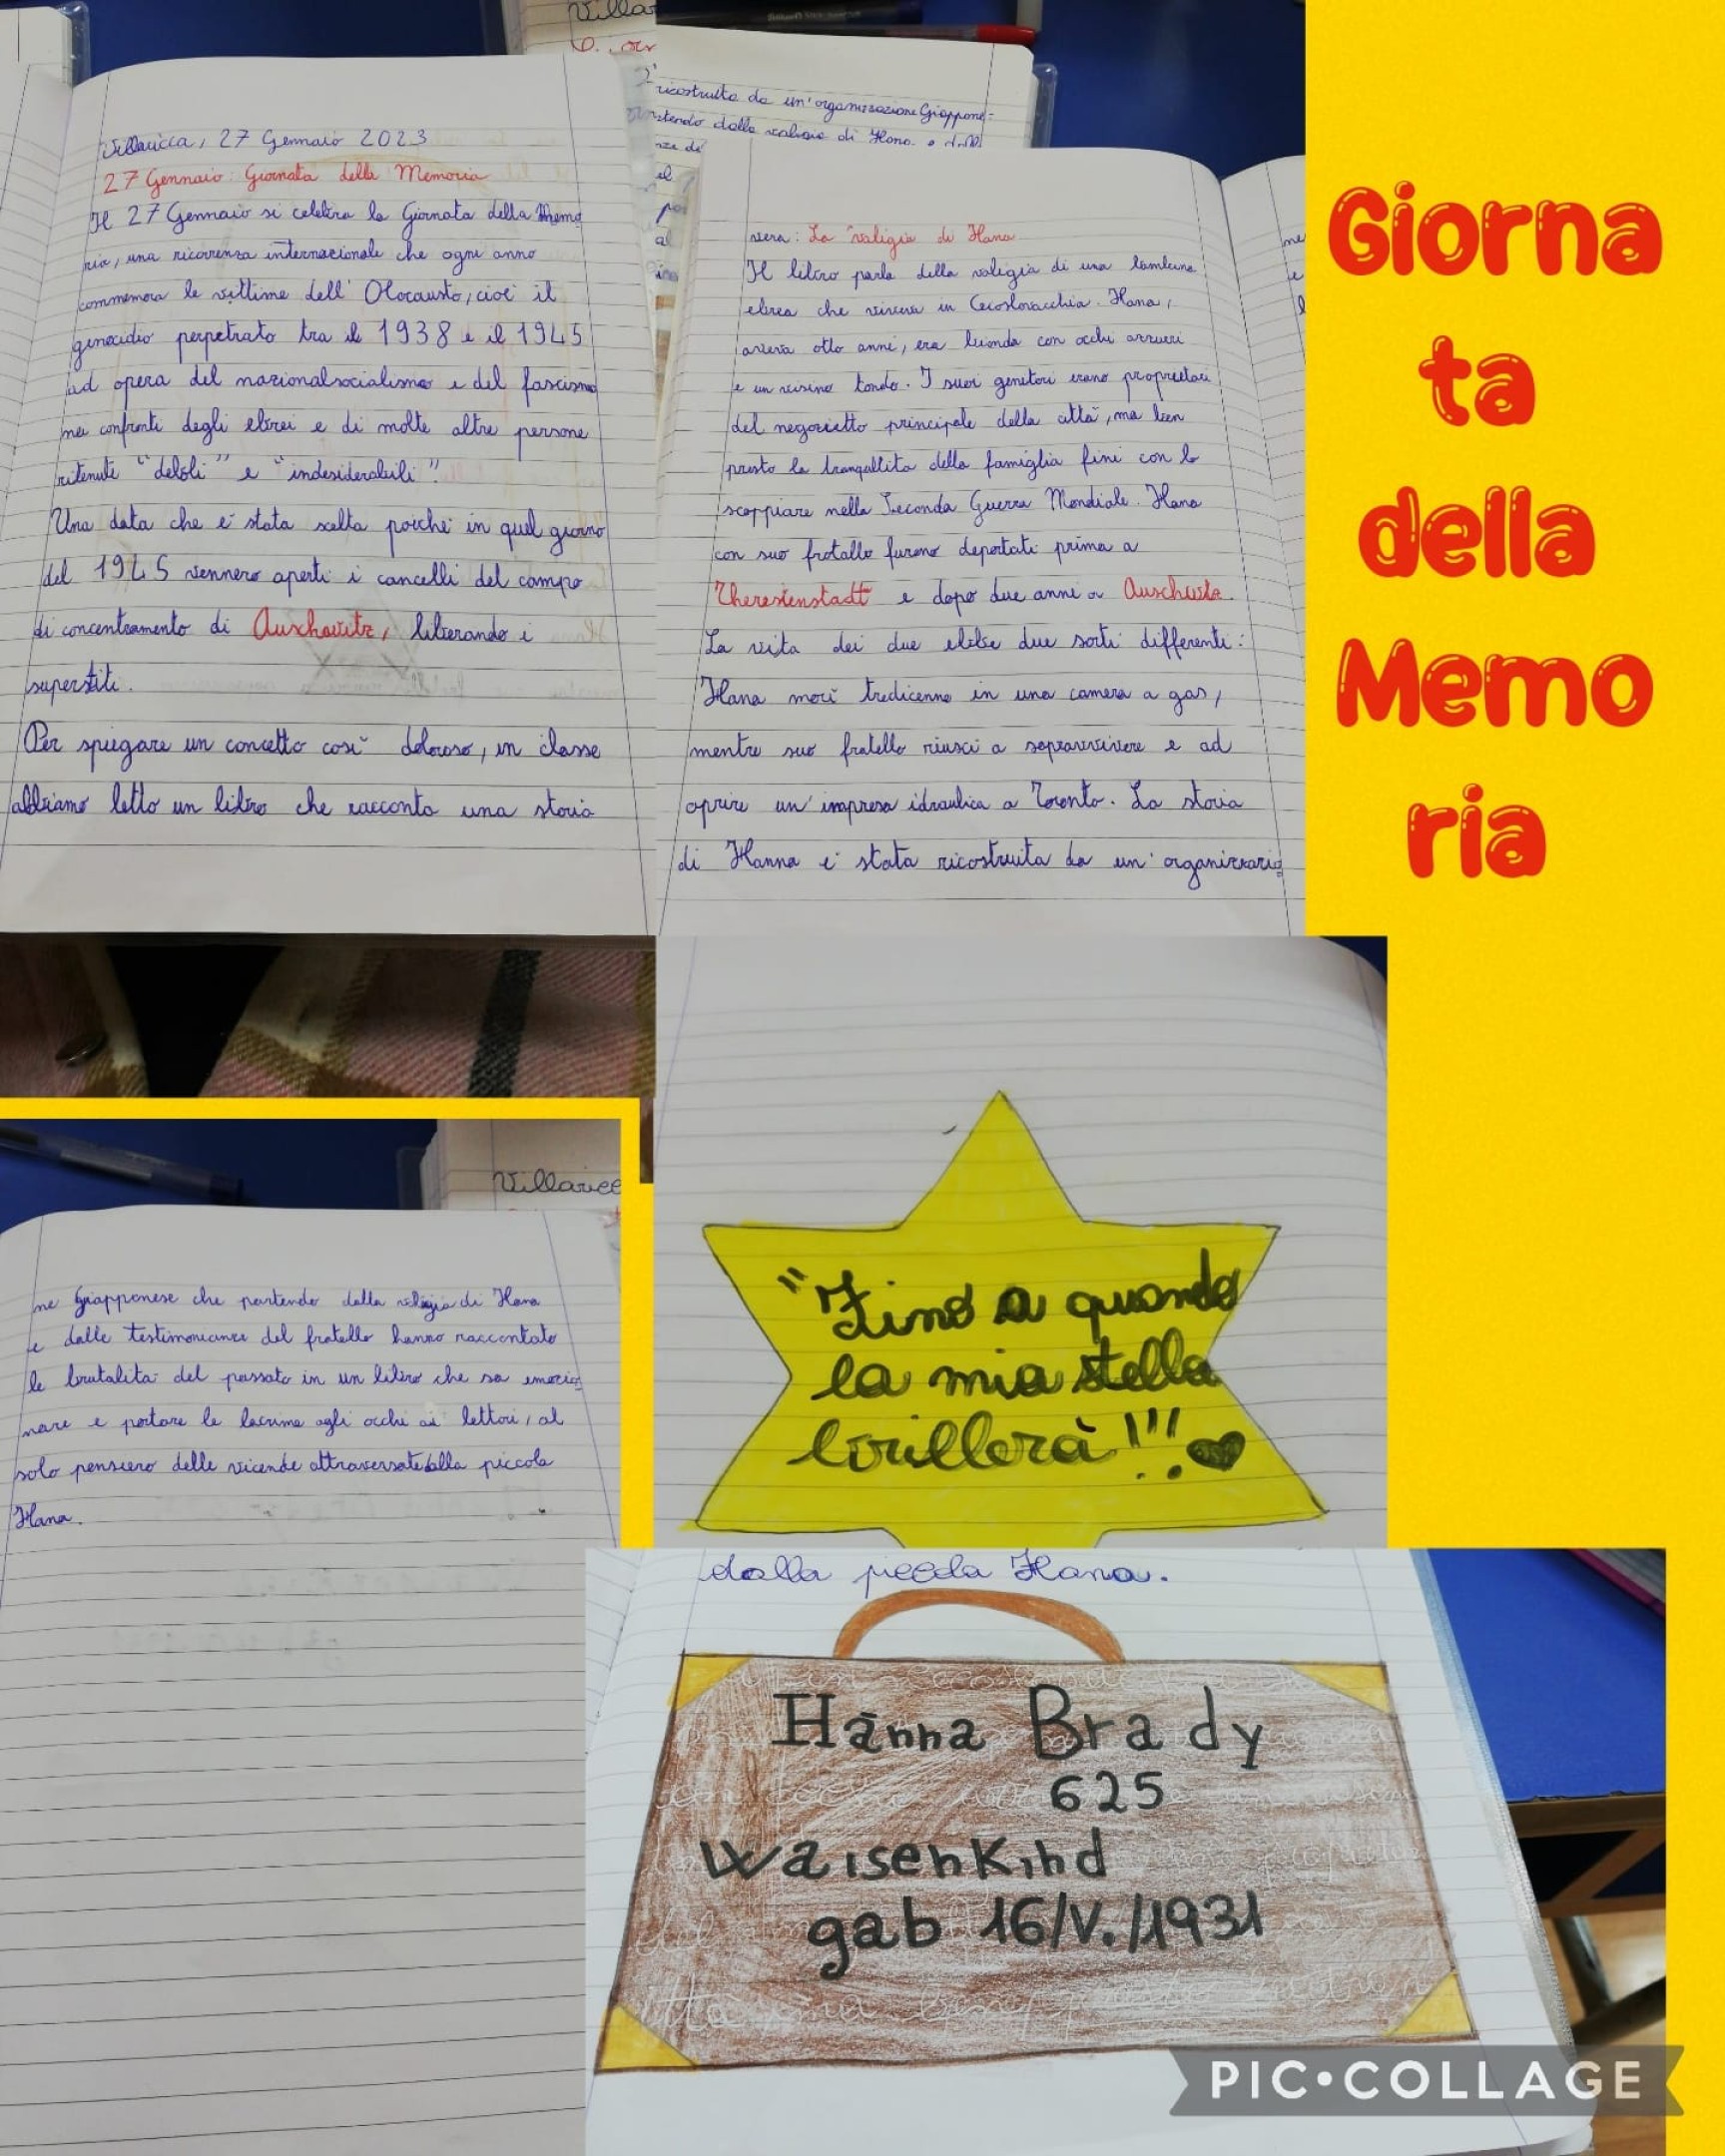 Villaricca, 27 Gennaio 2023
27 Gennaio: Giornata della Memoria
Il 27 Gennaio si celebra la Giornata della Memo
ria, una ricorrenza internazionale che ogni anno
commemora le vittime dell' Olocausto, cioè il
genocidio perpetrato tra il 1938 e il 1945
ad opera del nazionalsocialismo e del fascismo
nei confronti degli ebrei e di molte altre persone
ritenute "deboli" e "indesiderabili".
Una data che è stata scelta poiché in quel giorno
del 1945 vennero aperti i cancelli del campo
di concentramento di Auschwitz, liberando i
superstiti.
Per spiegare un concetto così doloroso, in classe
abbiamo letto un libro che racconta una storia
ricostruita da un'organizzazione Giappone=
dalla valigia di Hana e
vera: La valigia di Hana
Il libro parla della valigia di una bambina
ebrea che viveva in Cecoslovacchia. Hana,
aveva otto anni, era bionda con occhi azzurri
e un visino tondo. I suoi genitori erano proprietari
del negozietto principale della città, ma ben
presto la tranquallità della famiglia finì con lo
scoppiare nella Seconda Guerra Mondiale. Hana
con suo fratallo furono deportati prima a
Theresienstadt e dopo due anni a Auschwitz.
La vita dei due ebbe due sorti differenti:
Hana morì tredicenne in una camera a gas,
mentre suo fratello riuscì a sopravvivere e ad
aprire un'impresa idraulica a Toronto. La storia
di Hanna è stata ricostruita da un' organizzazio=
Giorna
ta
della
Memo
ria
Villaricc
ne Giapponese che partendo dalla valigia di Hana
e dalle testimonianze del fratello hanno raccontato
le brutalità del passato in un libro che sa emozio=
nare e portare le lacrime agli occhi ai lettori, al
solo pensiero delle vicende attraversate dalla piccola
Hana.
"Fino a quando
la mia stella
brillerà!!!
dalla piccola Hana.
Hanna Brady
625
Waisenkind
gab 16/V./1931
PIC•COLLAGE